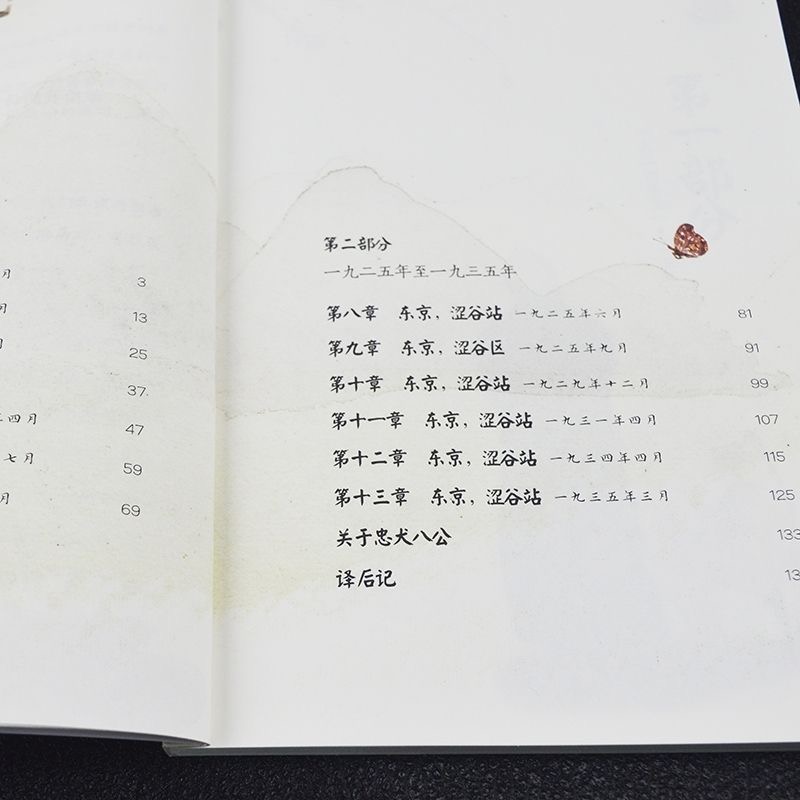 月 3
月 13
月 25
37
年四月 47
七月 59
月 69
第二部分
一九二五年至一九三五年
第八章 东京，涩谷站 一九二五年六月 81
第九章 东京，涩谷区 一九二五年九月 91
第十章 东京，涩谷站 一九二九年十二月 99
第十一章 东京，涩谷站 一九三一年四月 107
第十二章 东京，涩谷站 一九三四年四月 115
第十三章 东京，涩谷站 一九三五年三月 125
关于忠犬八公 133
译后记 13